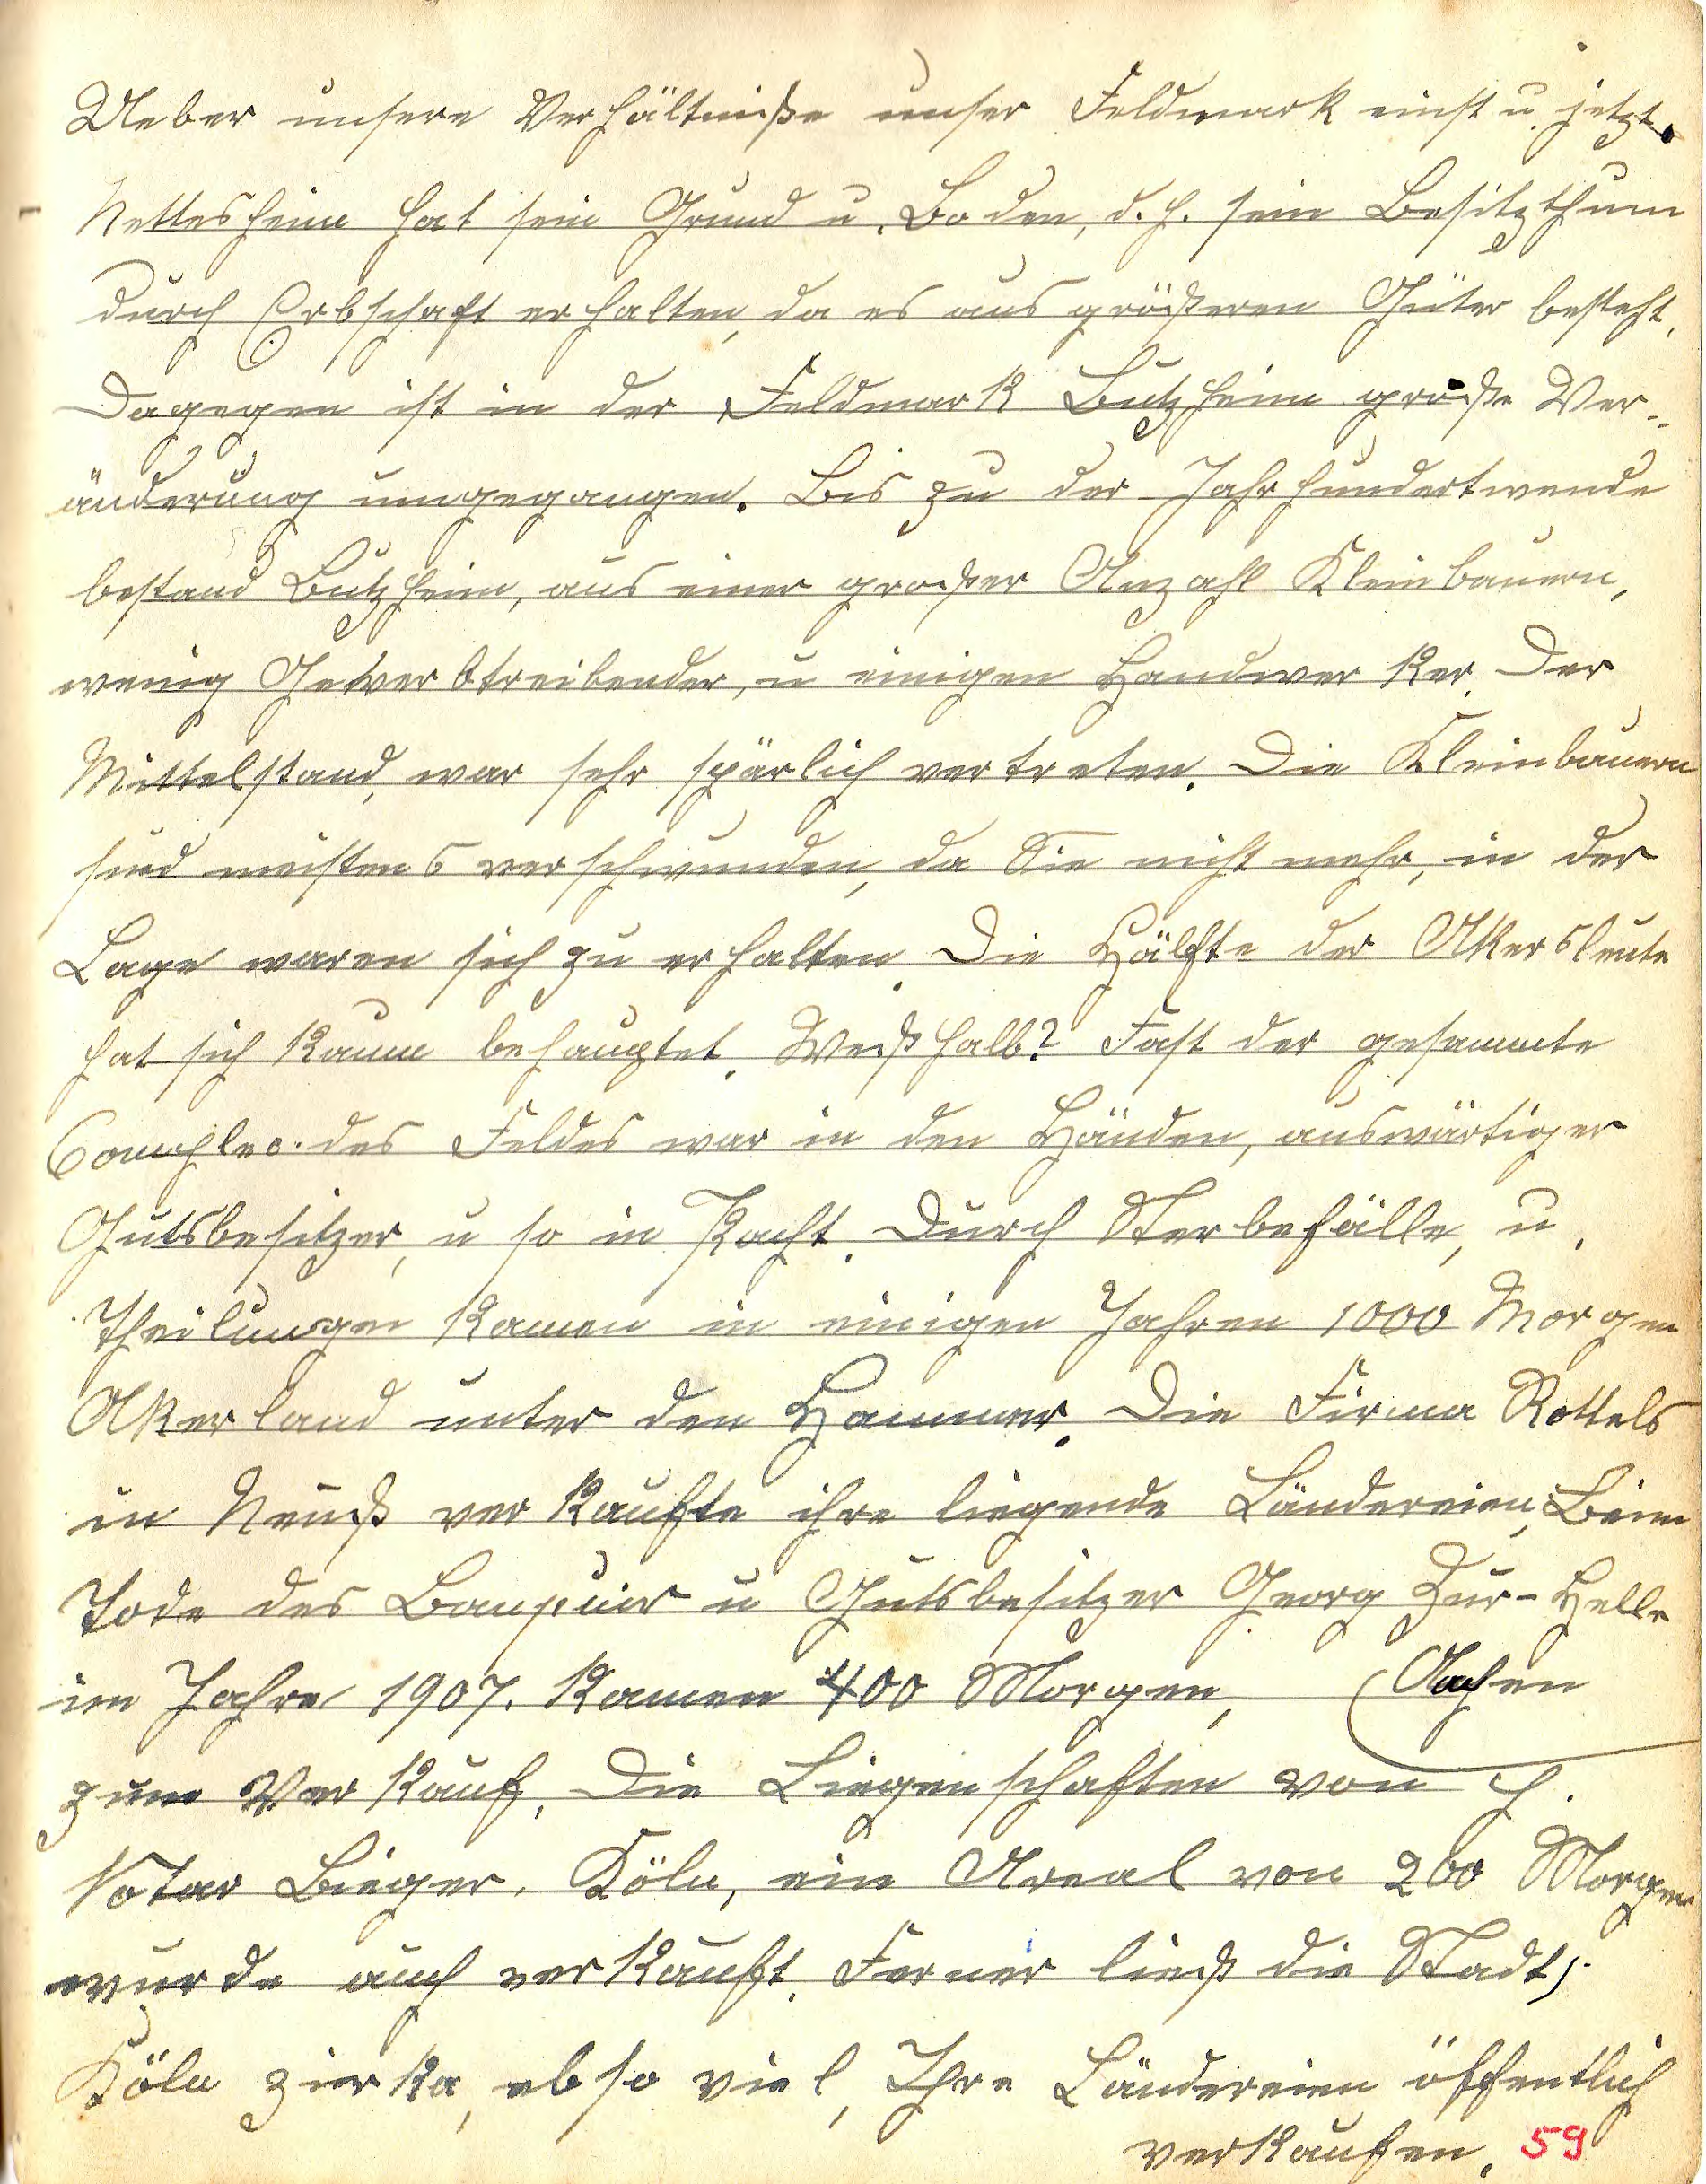 Ueber unsere Verhältniße unser Feldmark einst u. jetzt.
Nettesheim hat sein Grund u. Boden, d. h. sein Besitzthum
durch Erbschaft erhalten, da es aus größeren Güter besteht.
Dagegen ist in der Feldmark Butzheim große Ver-
änderung umgegangen. Bis zu der Jahrhundertwende
bestand Butzheim, aus einer großer Anzahl Kleinbauern,
wenig Gewerbtreibender, u einigen Handwerker. Der
Mittelstand, war sehr spärlich vertreten. Die Kleinbauern
sind meistens verschwunden, da Sie nicht mehr, in der
Lage waren sich zu erhalten. Die Hälfte der Akersleute
hat sich kaum behauptet. Weßhalb? Fast der gesammte
Complex des Feldes war in den Händen, auswärtiger
Gutsbesitzer, u so in Pacht. Durch Sterbefälle, u.
Theilungen kamen in einigen Jahren 1000 Morgen
Akerland unter den Hammer. Die Firma Rottels
in Neuß verkaufte ihre liegende Ländereien, Beim
Tode des Banquir u Gutsbesitzer Georg Zur-Helle
im Jahre 1907. kamen 400 Morgen, (Aachen
zum Verkauf. Die Liegenschaften von H.
Notar Bieger. Köln, ein Areal von 200 Morgen
wurde auch verkauft. Ferner ließ die Stadt
Köln zirka, ebso viel, Ihre Ländereien öffentlich
verkaufen. 59